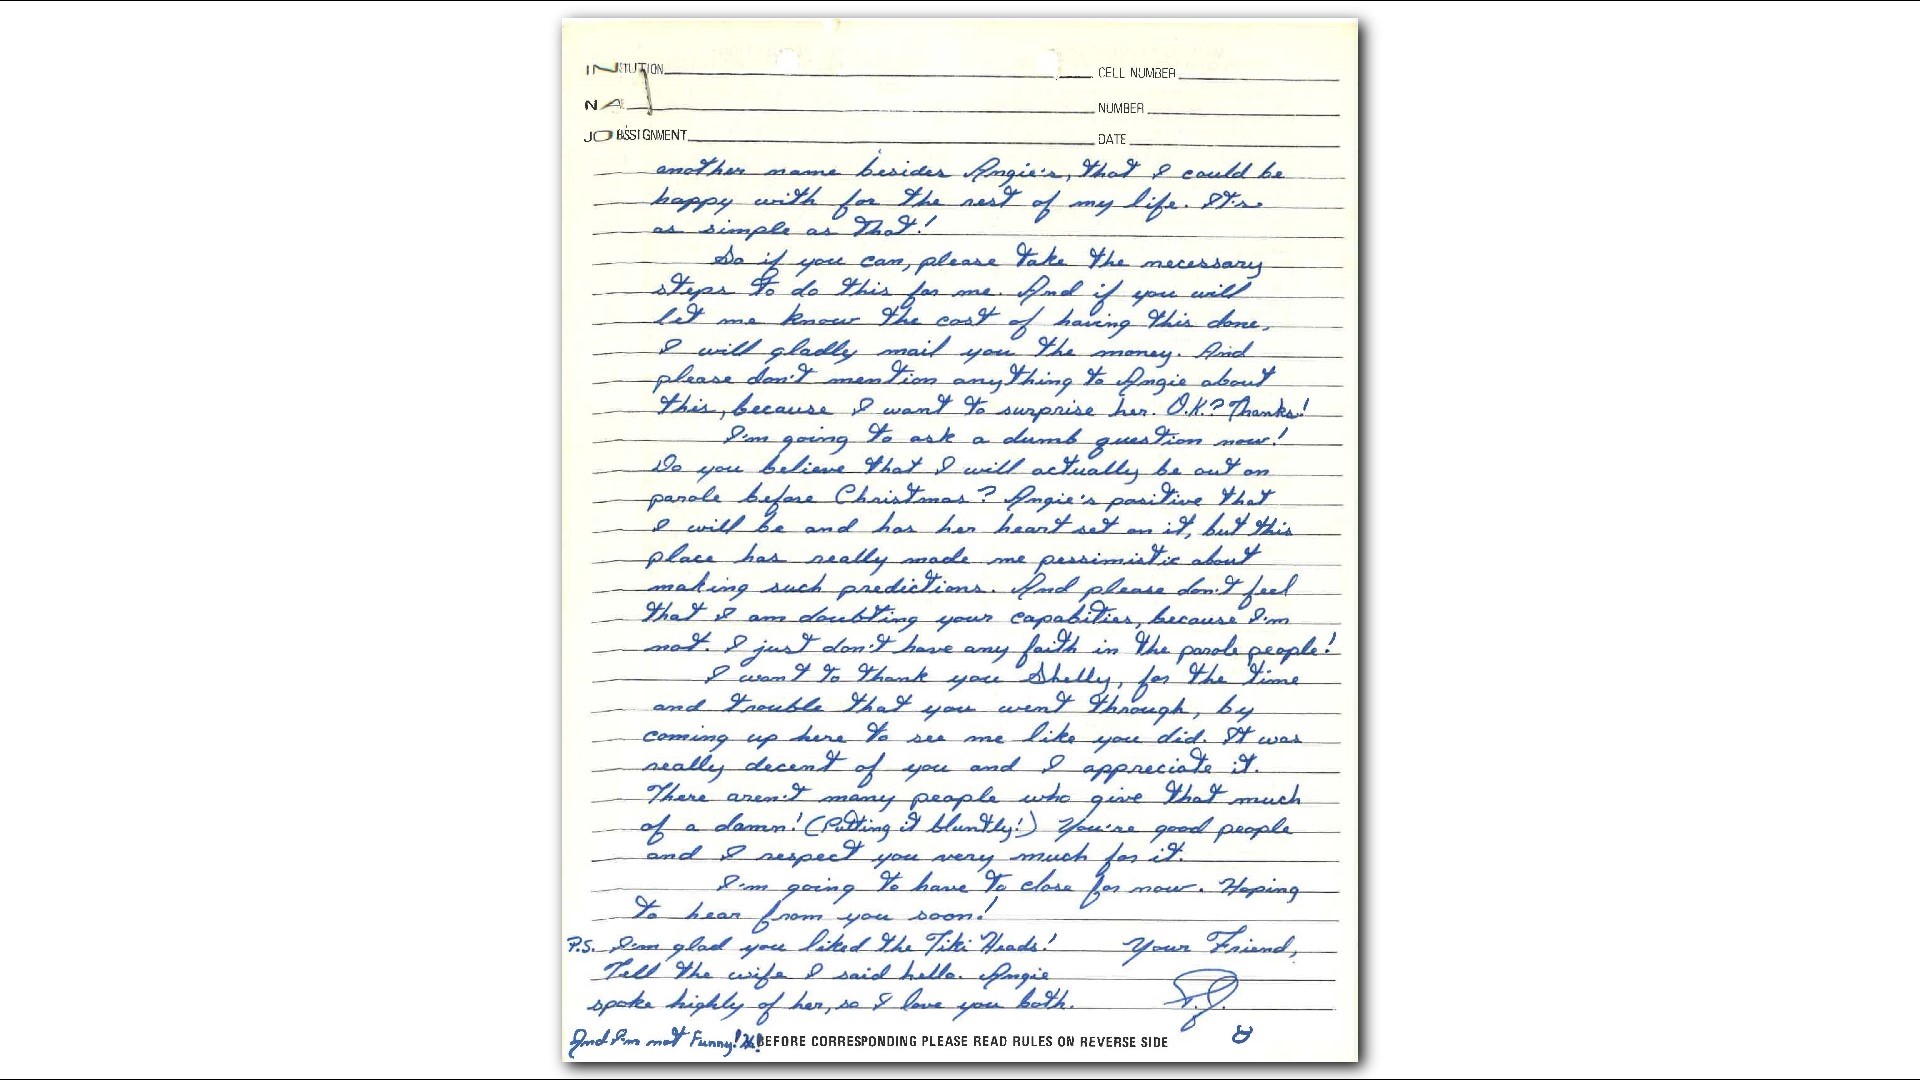 INSTITUTION CELL NUMBER
NA NUMBER
JOB ASSIGNMENT DATE
another name besides Angie's, that I could be
happy with for the rest of my life. It's
as simple as that!
So if you can, please take the necessary
steps to do this for me. And if you will
let me know the cost of having this done,
I will gladly mail you the money. And
please don't mention anything to Angie about
this, because I want to surprise her. O.K.? Thanks!
I'm going to ask a dumb question now!
Do you believe that I will actually be out on
parole before Christmas? Angie's positive that
I will be and has her heart set on it, but this
place has really made me pessimistic about
making such predictions. And please don't feel
that I am doubting your capabities, because I'm
not. I just don't have any faith in the parole people!
I want to thank you Shelly, for the time
and trouble that you went through, by
coming up here to see me like you did. It was
really decent of you and I appreciate it.
There aren't many people who give that much
of a damn! (Putting it bluntly!) You're good people
and I respect you very much for it.
I'm going to have to close for now. Hoping
to hear from you soon!
P.S. I'm glad you liked the Tiki Heads! Your Friend,
Tell the wife I said hello. Angie
spoke highly of her, so I love you both. T.J.
And I'm not Funny! BEFORE CORRESPONDING PLEASE READ RULES ON REVERSE SIDE